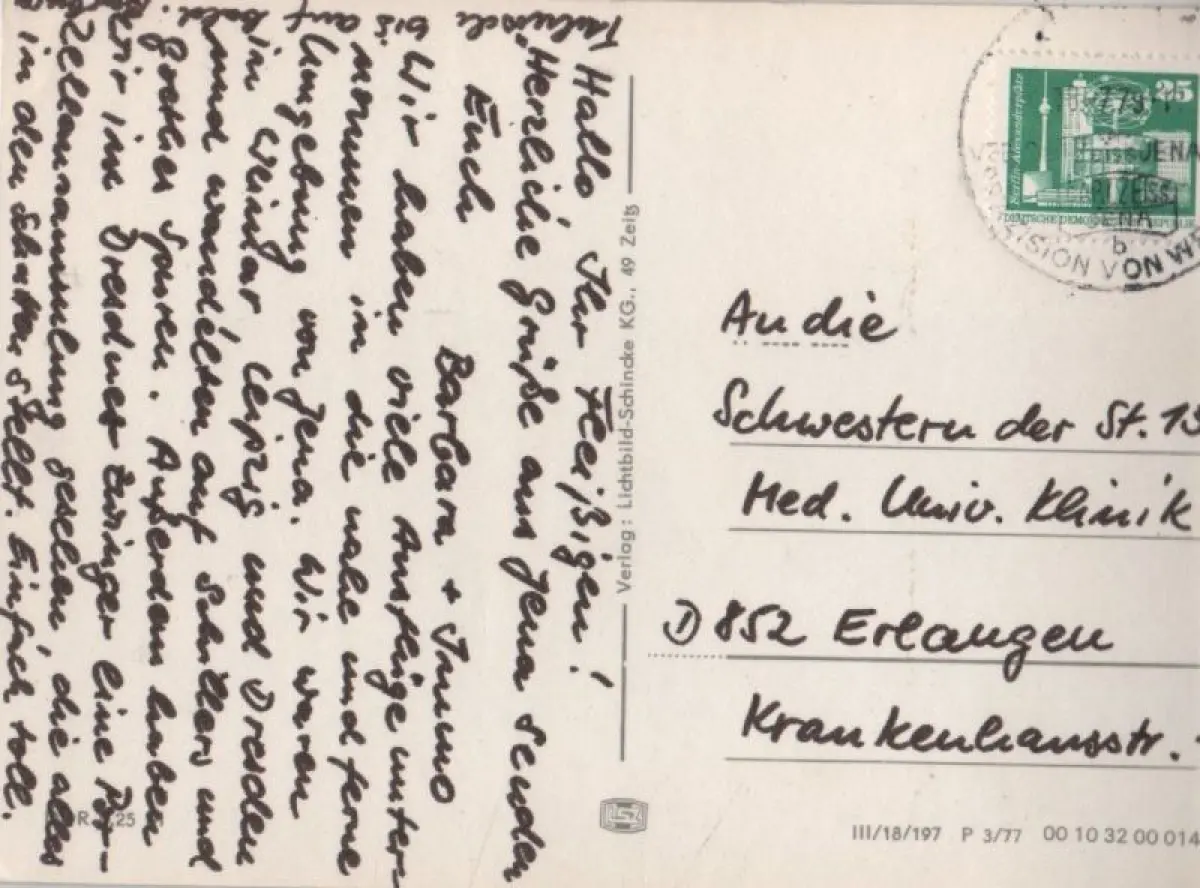 Hallo Ihr Fleißigen!
Herzliche Grüße aus Jena senden
Euch Barbara + Immo
Wir haben viele Ausflüge unter-
nommen in die nahe und ferne
Umgebung von Jena. Wir waren
in Weimar, Leipzig und Dresden
und wandelten auf Schillers und
Goethes Spuren. Außerdem haben
wir im Dresdner Zwinger eine Por-
zellansammlung gesehen, die alles
in den Schatten stellt. Einfach toll.
bis auf
bald.
Verlag: Lichtbild-Schincke KG., 49 Zeitz
25
Berlin-Alexanderplatz
DEUTSCHE
JENA
ZEISS
JENA
b
VON
An die
Schwestern der St. 13
Med. Univ. Klinik
D 852 Erlangen
Krankenhausstr.
R 25
III/18/197 P 3/77 00 10 32 00 014